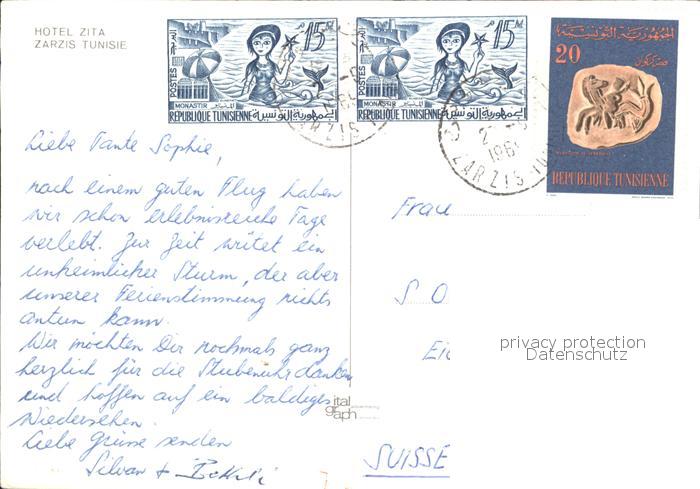 HOTEL ZITA
ZARZIS TUNISIE
15M
POSTES
MONASTIR المنستير
REPUBLIQUE TUNISIENNE الجمهورية التونسية
15M
POSTES
MONASTIR المنستير
REPUBLIQUE TUNISIENNE الجمهورية التونسية
الجمهورية التونسية
20
REPUBLIQUE TUNISIENNE
ZARZIS
ZARZIS
Liebe Tante Sophie,
nach einem guten Flug haben
wir schon erlebnisreiche Tage
verlebt. Zur Zeit wütet ein
unheimlicher Sturm, der aber
unserer Ferienstimmung nichts
antun kann.
Wir möchten Dir nochmals ganz
herzlich für die Stubenuhr danken
und hoffen auf ein baldiges
Wiedersehen.
Liebe Grüsse senden
Silvan +
ital
graph
Frau
S O
Ei
privacy protection
Datenschutz
SUISSE